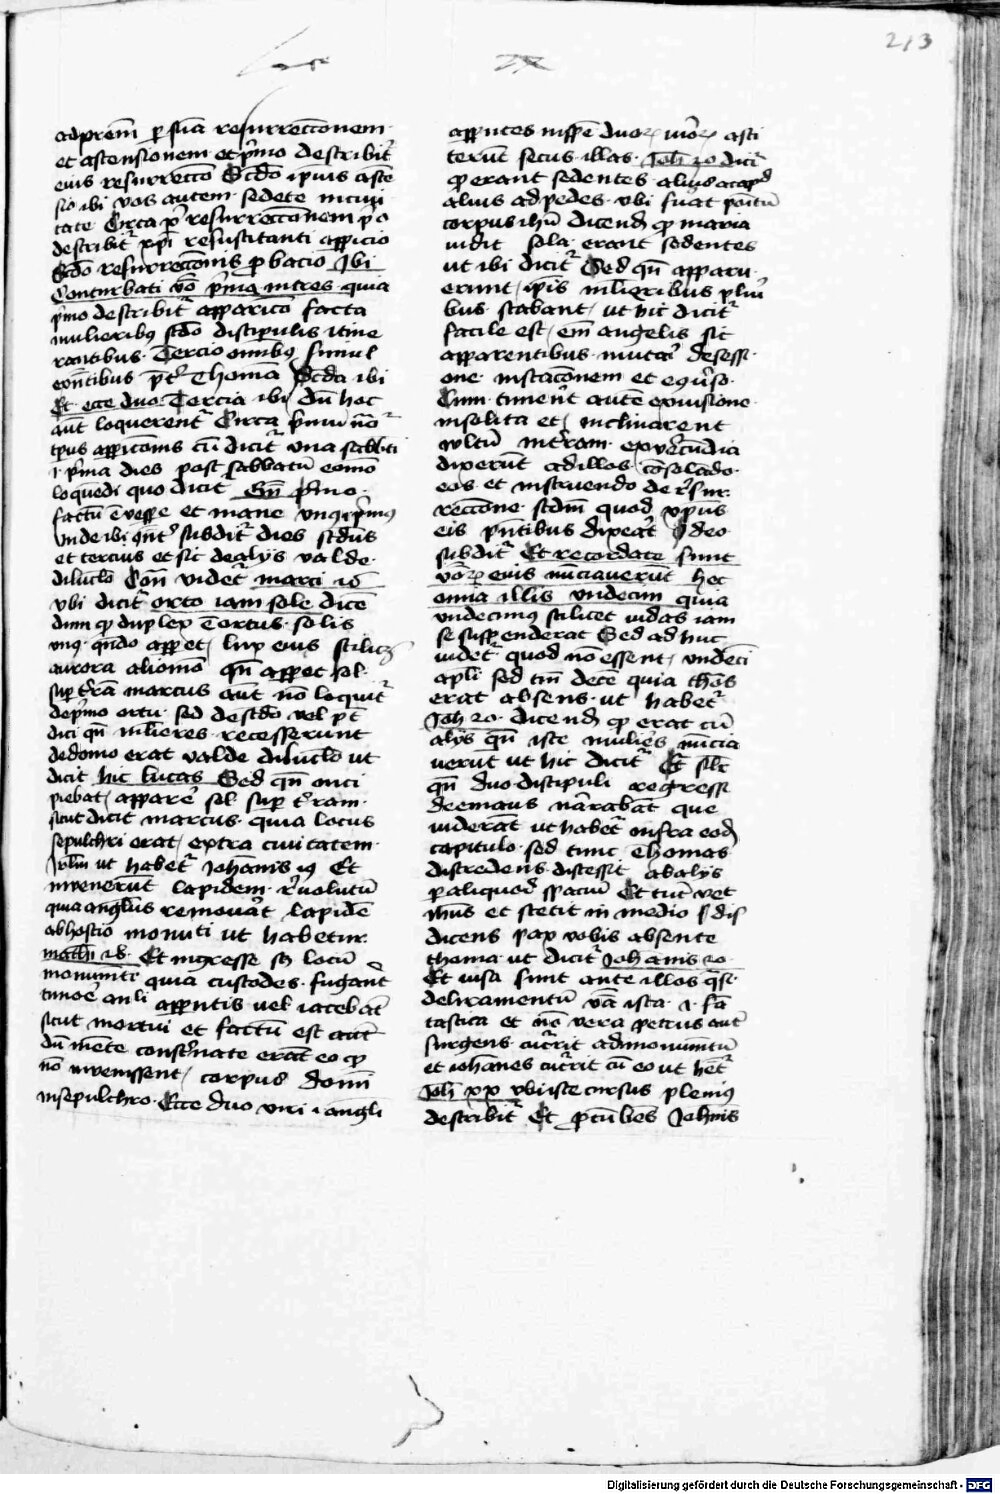 213
ad prem̄ p suā resurrecc̄onem
et ascensionem et p̄mo describit̄
eius resurrecc̄o Scdo ip̄ius asce
sio ibi vos autem sedete in civi
tate Circa p̄ resurrecc̄onem p̄o
describit̄ xp̄i resuscitanti apparicio
Scdo resurrecc̄onis p bacio Ibi
Conturbati vō p̄ma in tres quia
p̄mo describit̄ apparicō facta
mulieribꝯ scdo discipulis itine
rantibus Tercio omibꝯ simul
Thoma Scda ibi
Et ecce duo Tercia ibi Dū hec
aūt loquerent̄ Circa p̄mū nō
tp̄us appicionis cū dicit̄ una sabbati
i p̄ma dies post sabbatū eomō
loquēdi quo dicit̄ Gen̄ p̄mo
factū ē vespe et mane
vnde ibi subdit̄ dies scd̄us
et tercius et sic de alijs valde
diluclo Con̄ videt̄ marci 16
vbi dicit̄ orto iam sole dice
dum qp duplex Cortus solis
vnꝯ qn̄do appet lux eius scilicet
aurora alio mō qn̄ appet sol
sup t̄rā marcus aut nō loquit̄
de p̄mo ortu sed de scdo vel p̄t
dici qn̄ mlieres recesserunt
de domo erat valde diluclo ut
dicit hic lucas Sed qn̄ inci
piebat appare sol sup t̄ram
sicut dicit marcus quia locus
sepulchri erat extra civitatem
Irlm̄ ut habet̄ Johannis 19 Et
invenerūt lapidem r̄volutū
quia angl̄us removāt lapidē
ab hostio monūti ut habetur
math 28 Et ingresse st̄ locū
monumēti quia custodes fugant̄
timore anli appentis vel iacebāt
sicut mortui et factū est aut̄
dū mēte const̄nate erāt eo qp
nō invenissent corpus domi
in sepulchro Ecce duo viri i angl̄i
appntes in spē duoꝝ viroꝝ asti
terūt secus illas Joh 20 dicit̄
qp erant sedentes alius ad capd
alius ad pedes vbi fuat poitū
corpus ihū dicend qp maria
vidit sola erant sedentes
ut ibi dicit̄ Sed qn̄ apparu
erunt ip̄is mlieribus pluri
bus stabant ut hic dicit̄
facile est em̄ angelis sic
apparentibus mutari de sessi
one in stac̄onem et econv̄so
Cum timeret autē ex visione
insolita et inclinarent
vultū in t̄ram ex v̄ecūdia
dixerūt ad illos cōsolādo
eos et instruendo de r̄sur
reccione scdm quod xp̄us
eis vnitibus dixerat Ideo
subdit̄ Et recordate sunt
v̄boꝝ eius nūciaverūt hec
omia illis vndecim quia
vndecimus scilicet iudas iam
se suspenderat Sed ad huc
videt̄ quod nō essent vndeci
apl̄i sed tm̄ decē quia thōs
erat absens ut habet̄
Joh 20 dicend qp erat cū
alijs qn̄ iste mulieres nūcia
verūt ut hic dicit̄ Et silr
qn̄ duo discipuli regressi
de emaus narrabāt que
viderāt ut habet̄ infra eod
capitulo sed tunc Thomas
discredens discessit ab alijs
p aliquod spaciū Et tūc vet
ihūs et stetit in medio s dis
dicens pax vobis absente
thoma ut dicit Johannis 20
Et visa sunt ante illos qsi
deliramentū v̄ba ista i fā
tastica et nō vera petrus aut
surgens cucurrit ad monumētū
et iohānes cucurrit cū eo ut het̄
Joh xx vbi iste cursus plenius
describit̄ Et p̄cūbēs Johnis
Digitalisierung gefördert durch die Deutsche Forschungsgemeinschaft - DFG